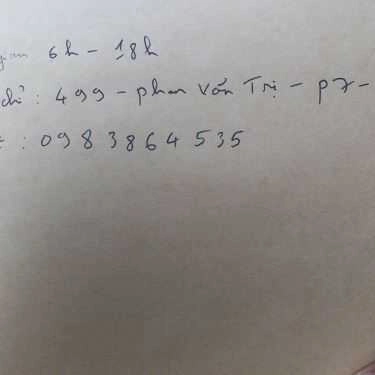 gian 6h - 18h
chỉ : 499 - phan Văn Trị - p7 -
: 0983864535